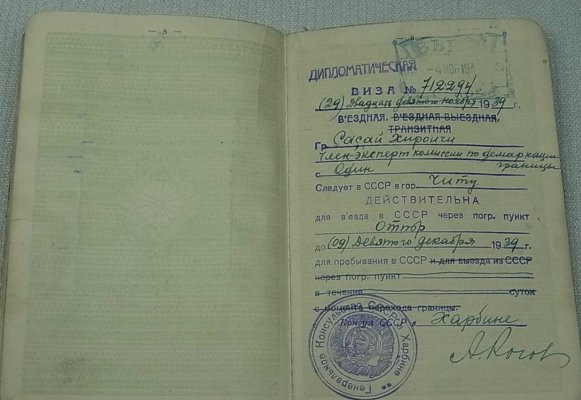 — 8 —
ДИПЛОМАТИЧЕСКАЯ
ВИЗА № 712294
(29) Двадцать девятого ноября 1939 г.
В'ЕЗДНАЯ, В'ЕЗДНАЯ-ВЫЕЗДНАЯ,
ТРАНЗИТНАЯ
Гр. Сасай Хироичи
Член-эксперт комиссии по демаркации
границы
с Один
Следует в СССР в гор. Читу
ДЕЙСТВИТЕЛЬНА
для в'езда в СССР через погр. пункт
Отпор
до (09) Девятого декабря 1939 г.
для пребывания в СССР и для выезда из СССР
через погр. пункт
в течение суток
с момента перехода границы.
Консул СССР в Харбине
Генеральное Консульство СССР в Харбине